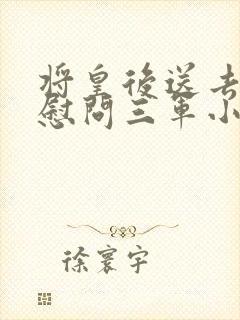 將皇後送去
慰問三軍小
徐寰宇